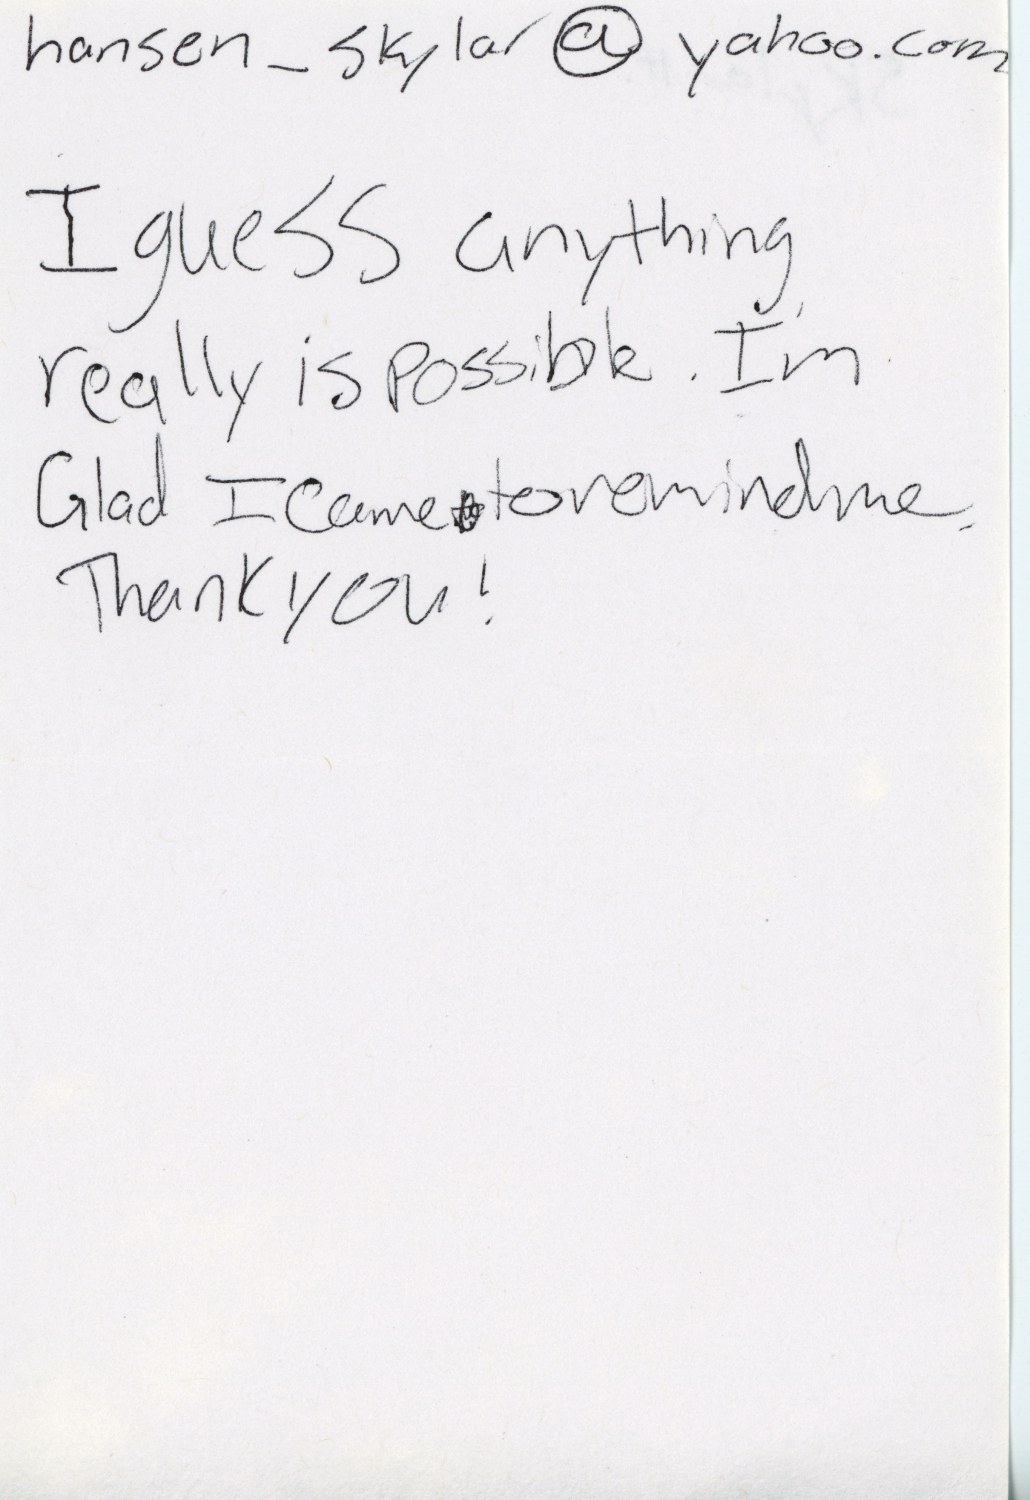 hansen_skylar@yahoo.com
I guess anything
really is possible. I'm
Glad I came to remind me.
Thank you!